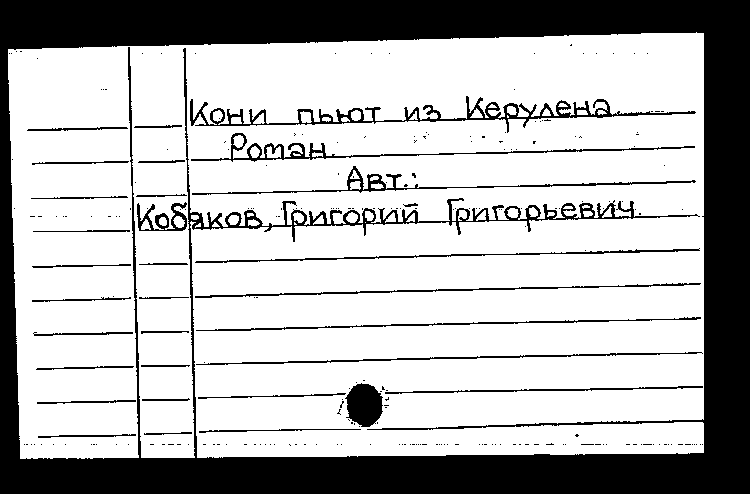 Кони пьют из Керулена.
Роман.
Авт.:
Кобяков, Григорий Григорьевич.